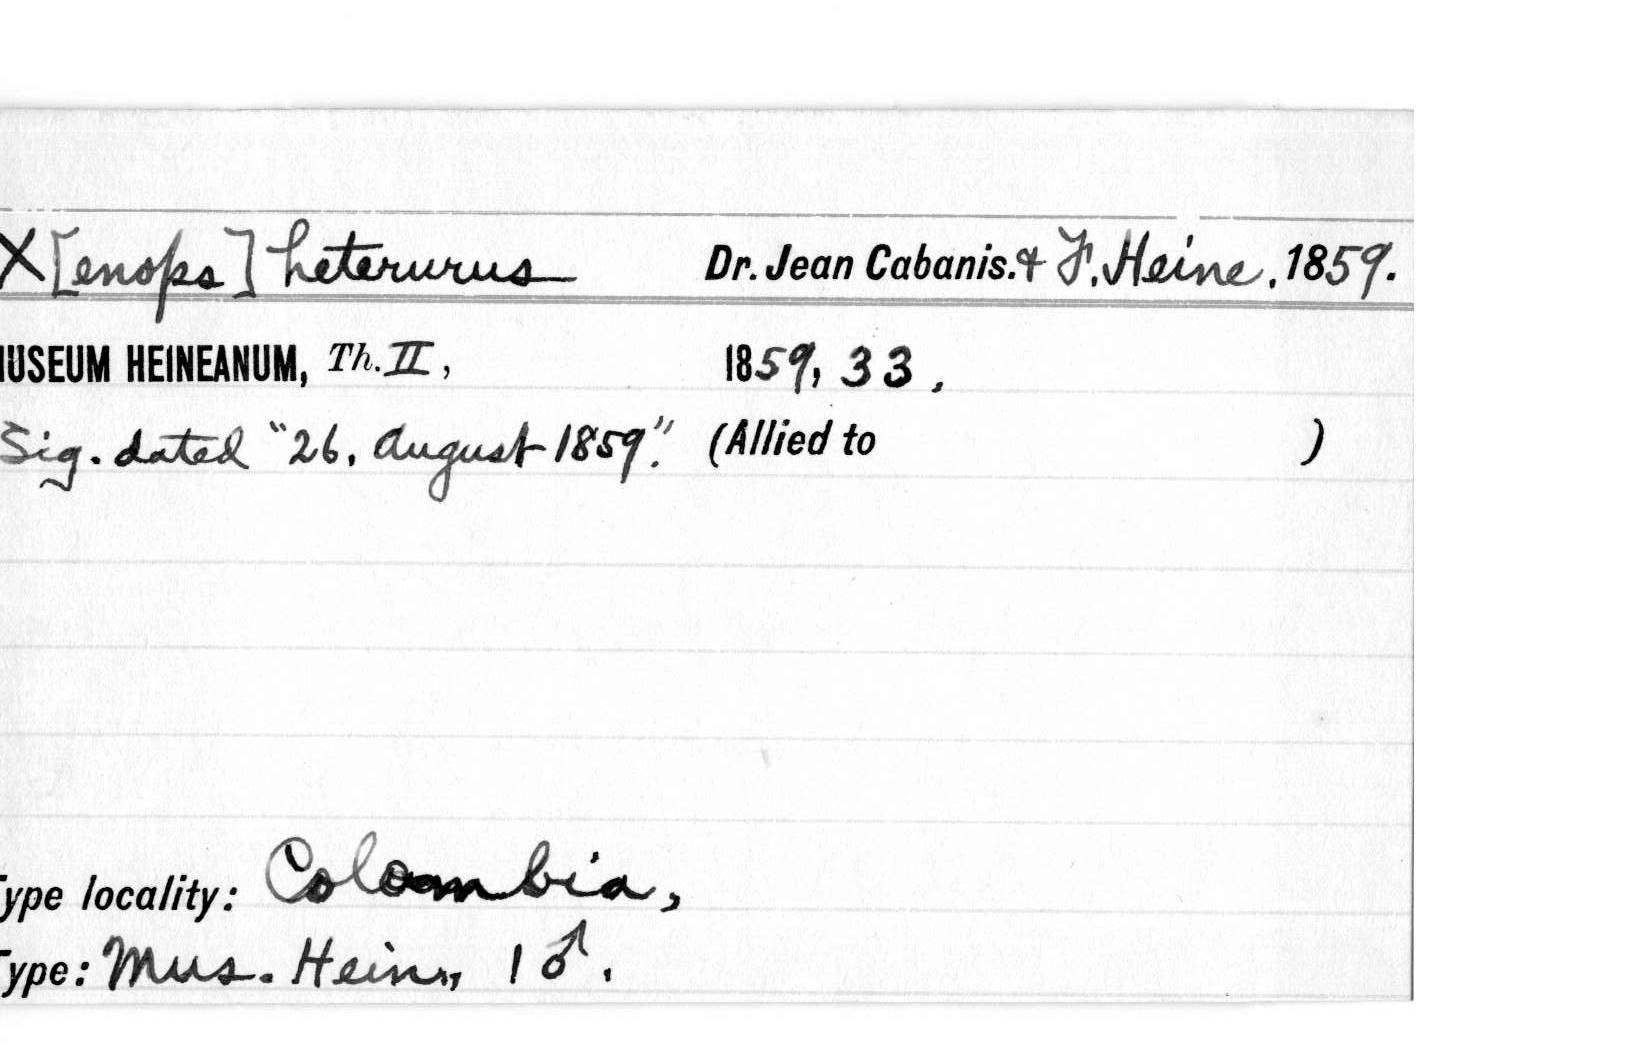 X[enops] heterurus Dr. Jean Cabanis. & F. Heine, 1859.
MUSEUM HEINEANUM, Th. II, 1859, 33,
Sig. dated "26. August 1859". (Allied to )
Type locality: Colombia,
Type: Mus. Hein., 1 ♂.